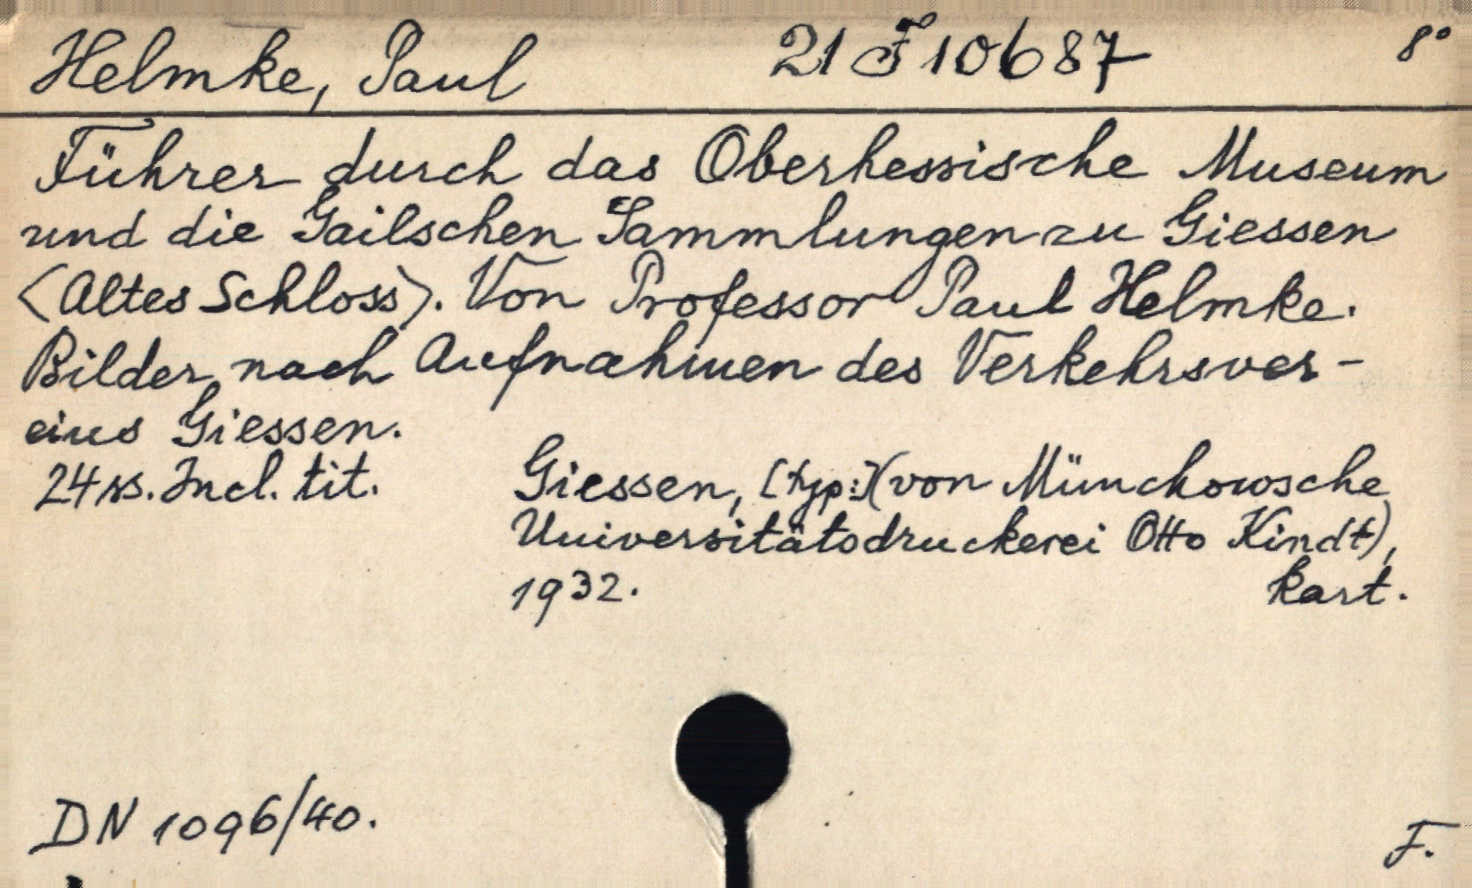 Helmke, Paul 21 F 10687 8°
Führer durch das Oberhessische Museum
und die Gailschen Sammlungen zu Giessen
<Altes Schloss>. Von Professor Paul Helmke.
Bilder nach Aufnahmen des Verkehrsver-
eins Giessen.
24 ss. Incl. tit. Giessen, [typ:](von Münchowsche
Universitätsdruckerei Otto Kindt),
1932. kart.
DN 1096/40. F.